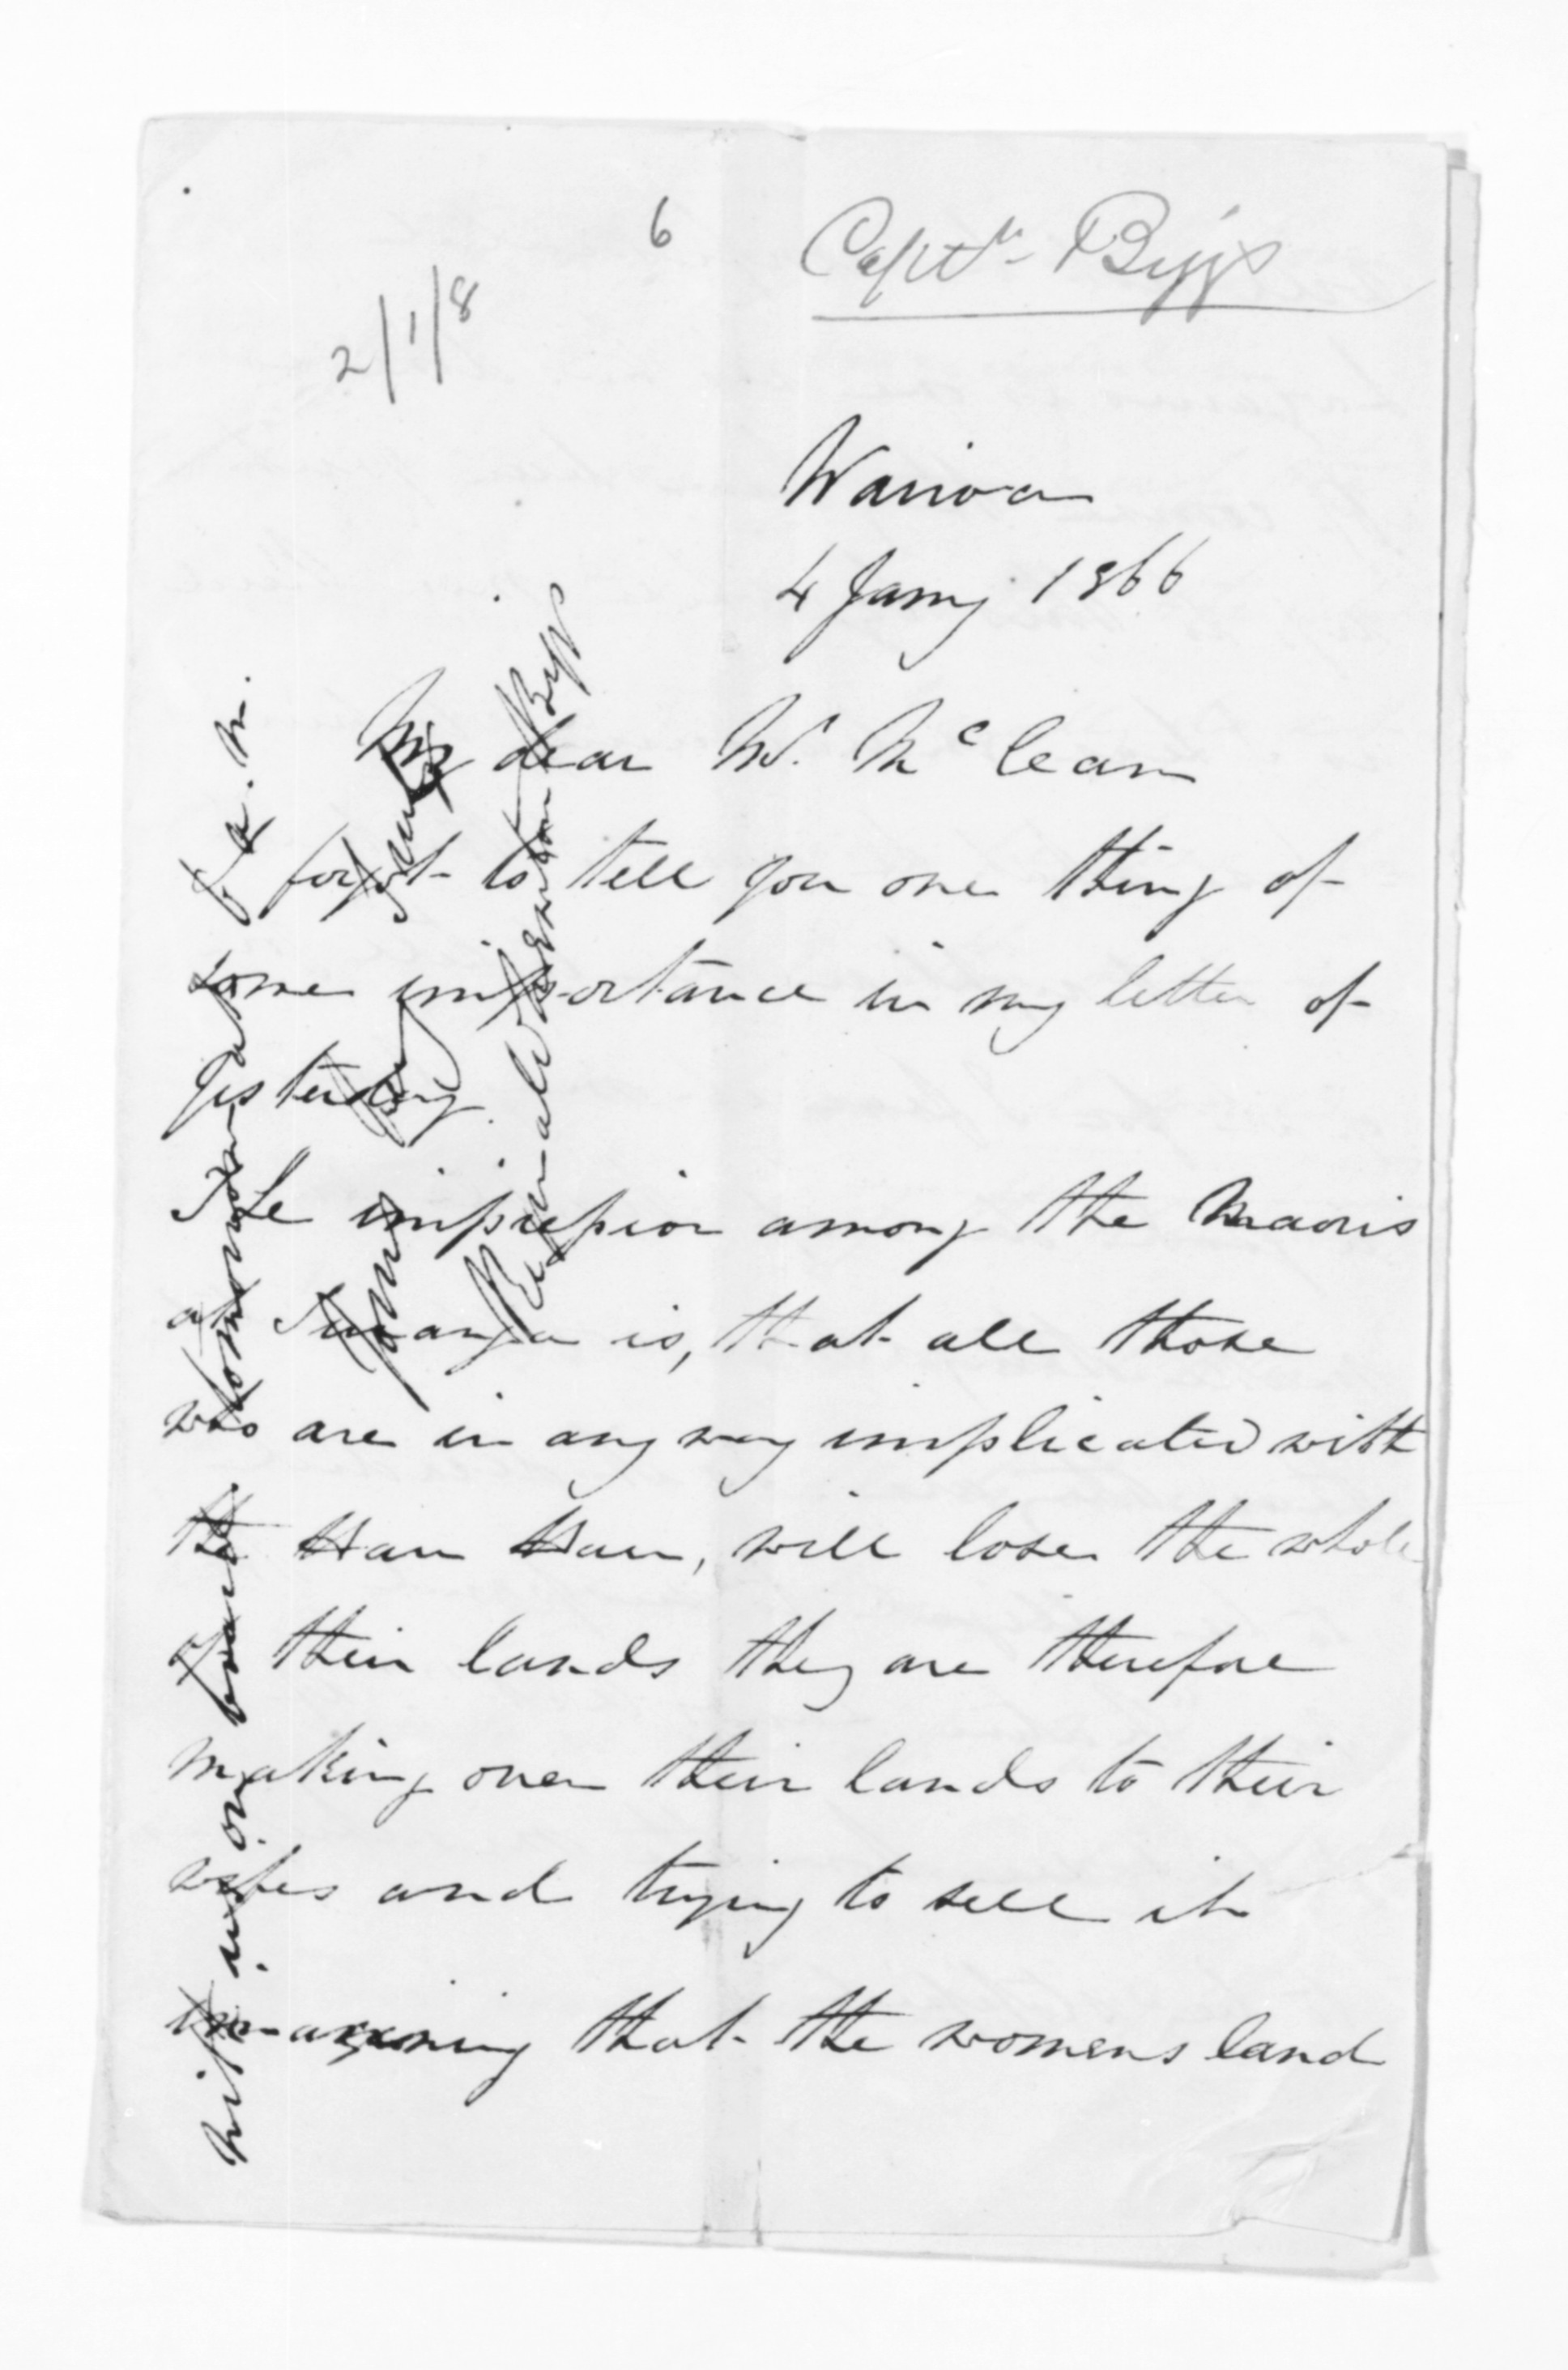 6
Captn. Biggs
2/1/8
Wairoa
4 Jany 1866
My dear Mr. McLean
I forgot to tell you one thing of
some importance in my letter of
yesterday.
The impression among the Maoris
at Turanga is, that all those
who are in any way implicated with
the Hau Hau, will lose the whole
of their lands they are therefore
making over their lands to their
wifes and trying to sell it
imagining that the womens land
will be in on board tomorrow at 6 a.m.
Yours very
Reginald Newton Biggs